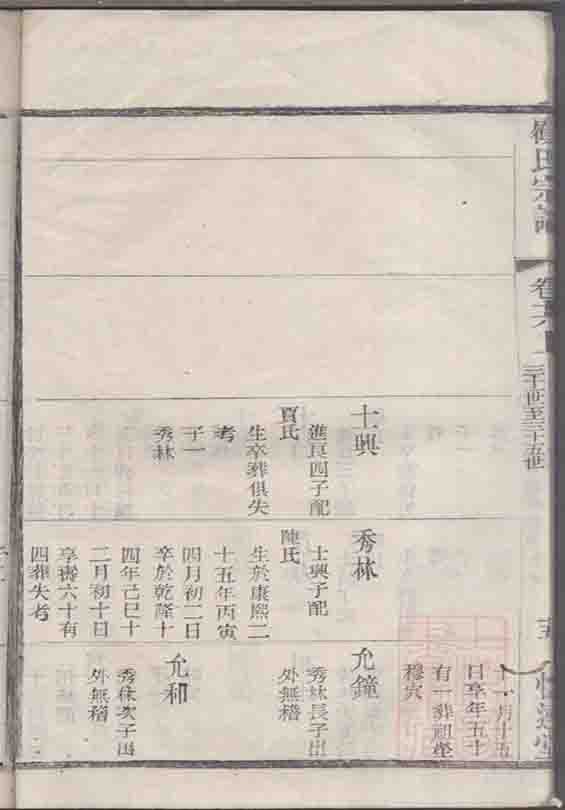 氏宗譜
卷六
世至三十五世
堂
士興
進良四子配
氏
生卒葬俱失
考
子一
秀林
秀林
士興子配
陳氏
生於康熙二
十五年丙寅
四月初二日
卒於乾隆十
四年己巳十
二月初十日
享壽六十有
四葬失考
十一月十五
日享年五十
有一葬祖塋
穆穴
允鐘
秀林長子出
外無稽
允和
秀林次子出
外無稽